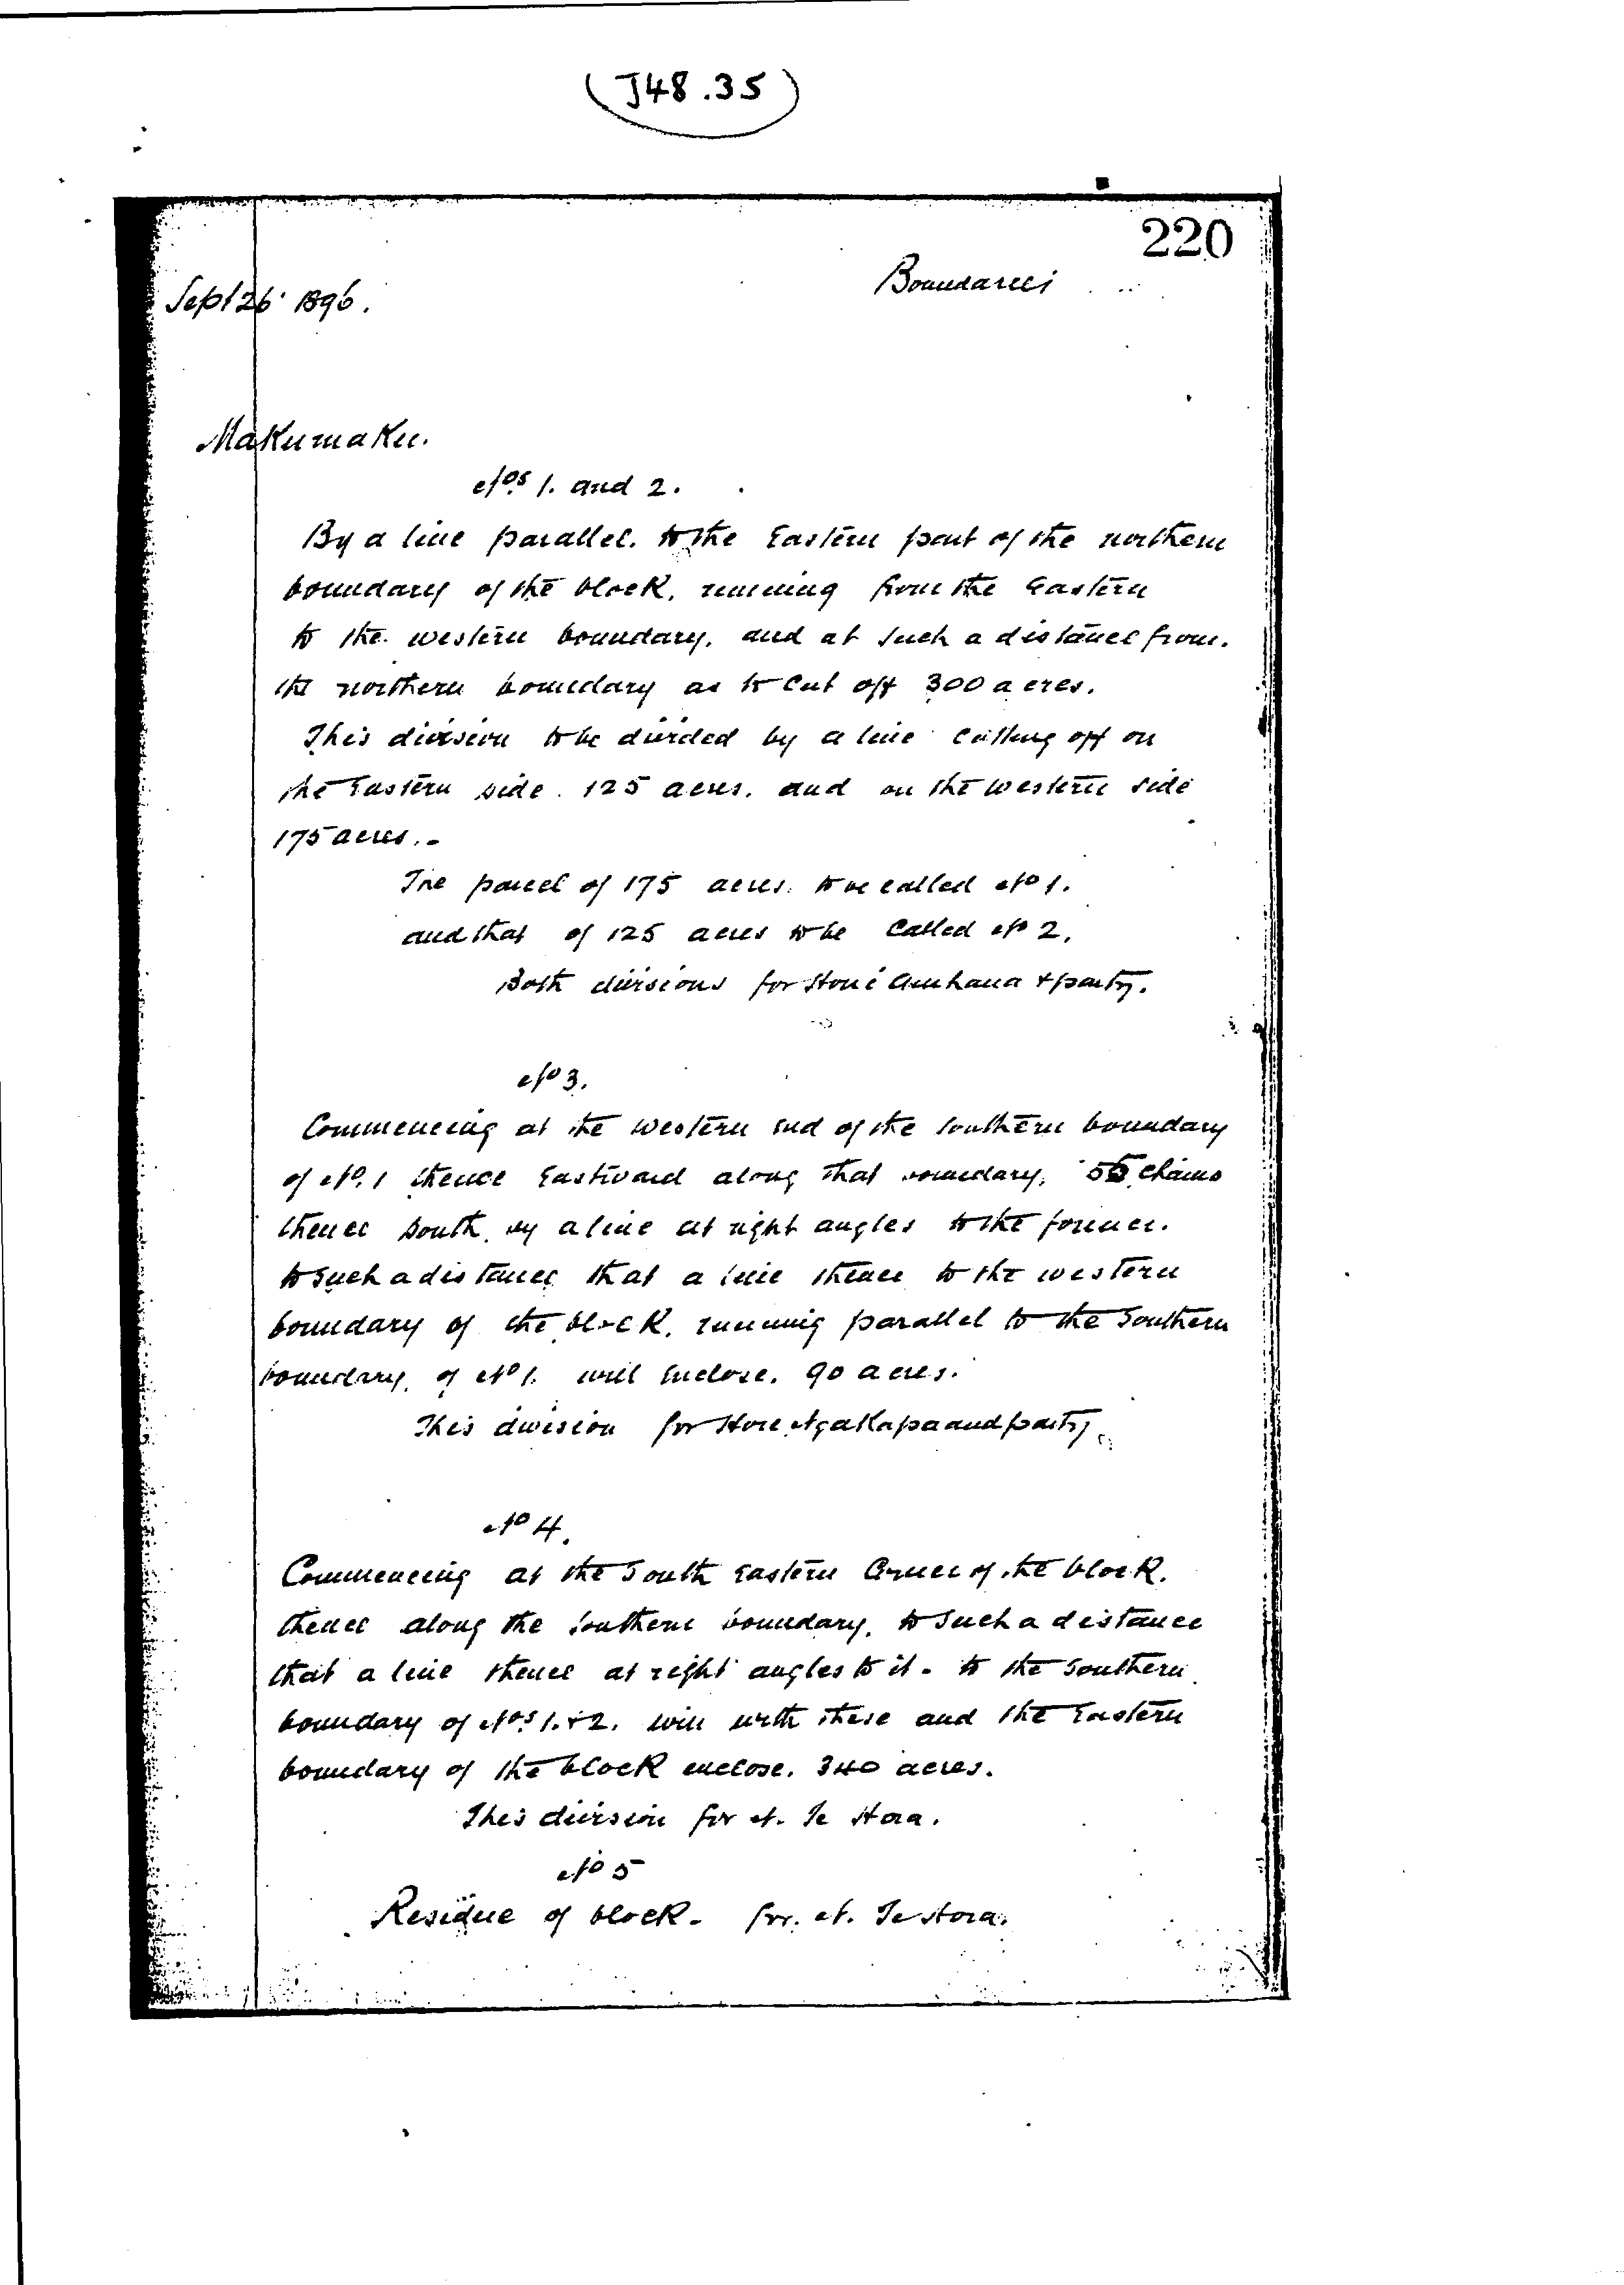 (J48.35)
220
Boundaries
Sept 26 1896.
Makumaku.
Nos. 1. and 2.
By a line parallel. to the Eastern part of the northern
boundary of the block, running from the Eastern
to the western boundary. and at such a distance from.
the northern boundary as to cut off 300 acres.
This division to be divided by a line cutting off on
the Eastern side. 125 acres. and on the western side
175 acres.-
The parcel of 175 acres. to be called No 1.
and that of 125 acres to be called No 2.
Both divisions for Hone & party.
No 3.
Commencing at the western end of the southern boundary
of No. 1 thence Eastward along that boundary. chains
thence south by a line at right angles to the former.
to such a distance that a line thence to the western
boundary of the block. running parallel to the Southern
boundary. of No 1. will inclose. 90 acres.
This division for Hore Ngakapa and party
No 4.
Commencing at the South Eastern Corner of the block.
thence along the southern boundary. to such a distance
that a line thence at right angles to it - to the southern
boundary of Nos. 1. & 2. will with these and the Eastern
boundary of the block enclose. 340 acres.
This division for N. Te Hora.
No 5
Residue of block - for. N. Te Hora.